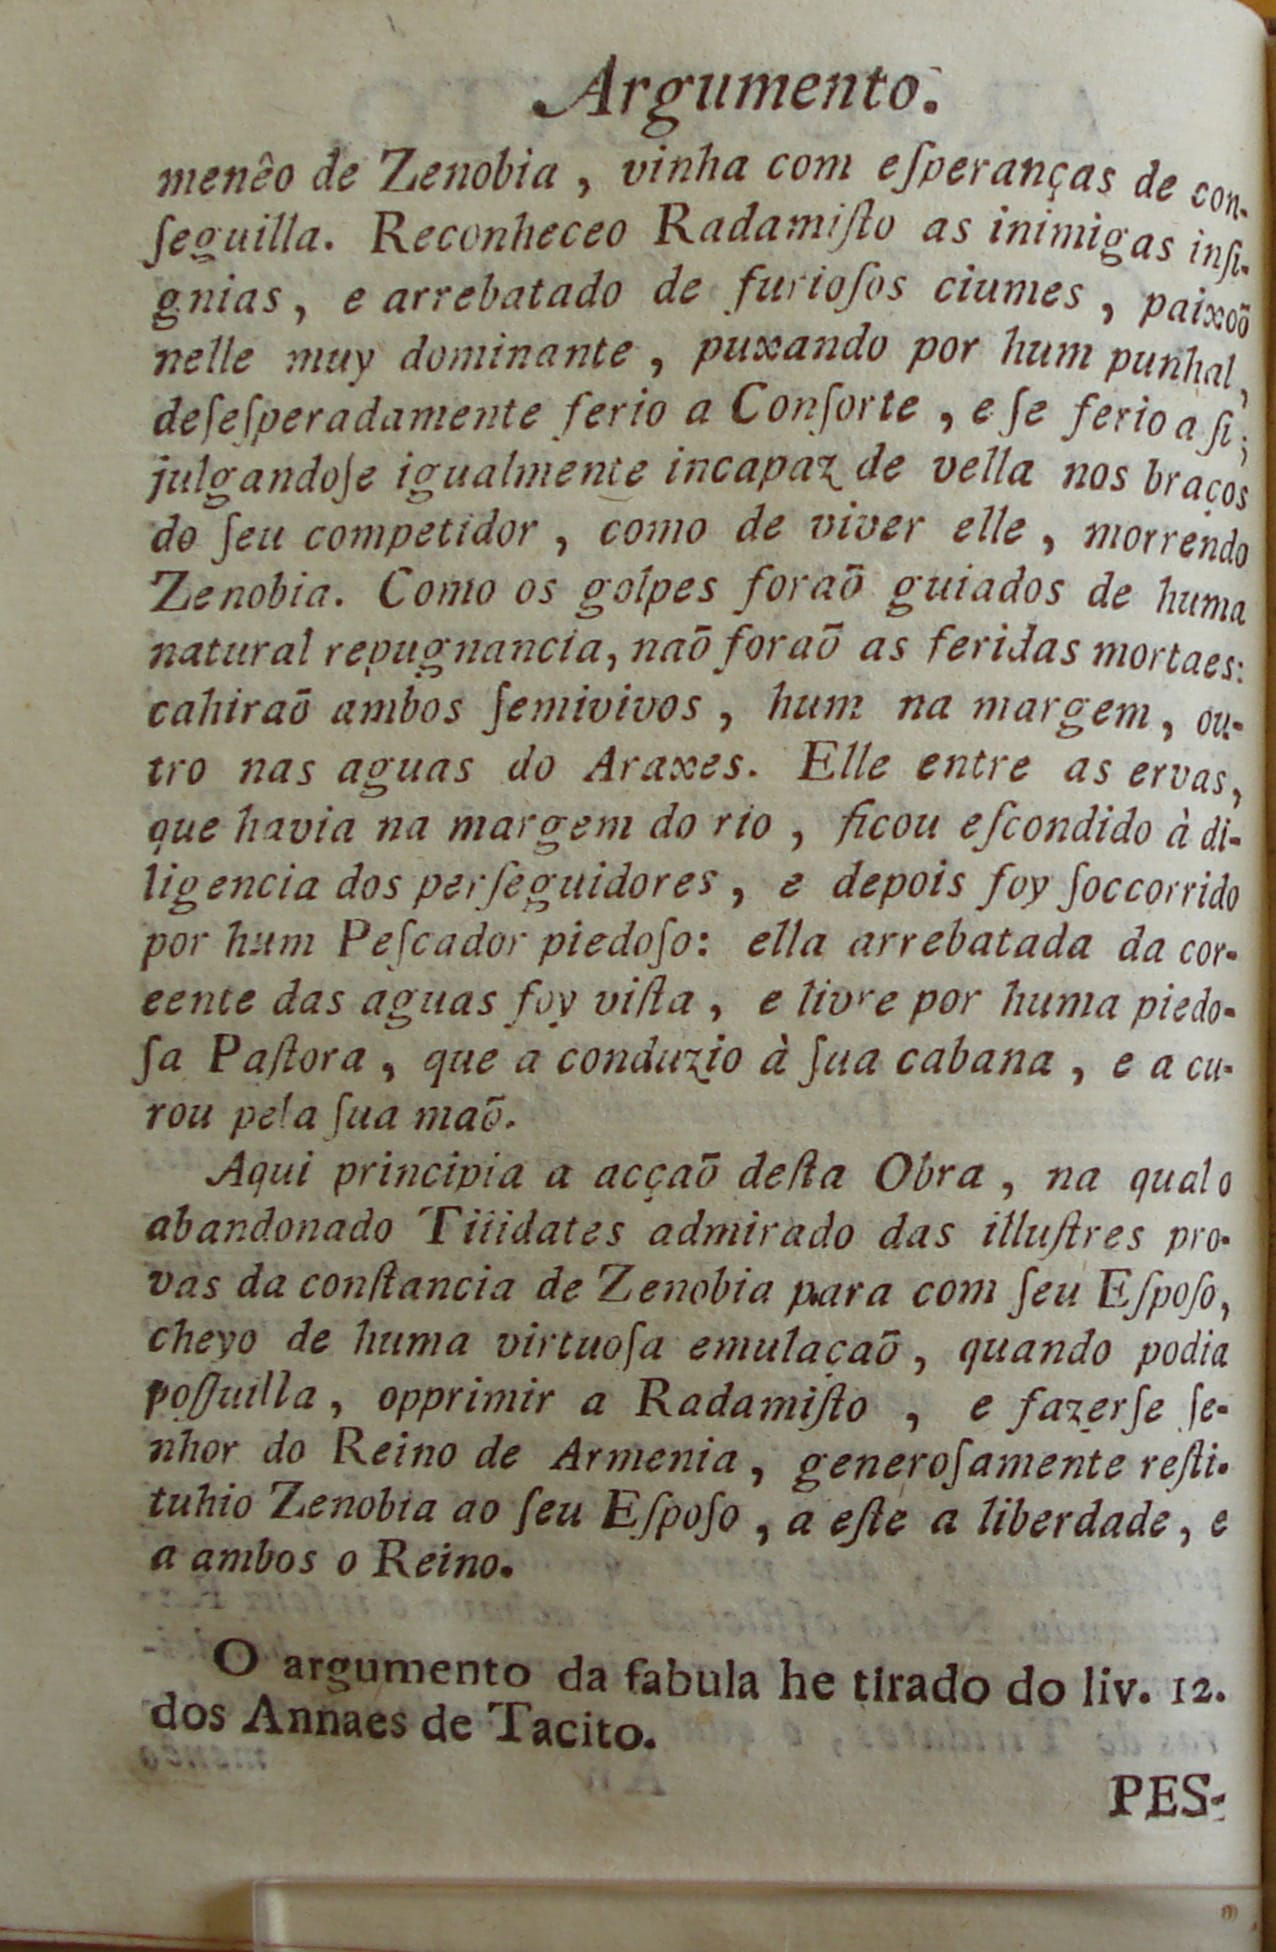 Argumento.
menêo de Zenobia , vinha com eſperanças de con-
ſeguilla. Reconheceo Radamiſto as inimigas inſi-
gnias, e arrebatado de furioſos ciumes , paixoõ
nelle muy dominante , puxando por hum punhal,
deſeſperadamente ferio a Conſorte , e ſe ferio a ſi;
julgandoſe igualmente incapaz de vella nos braços
do ſeu competidor , como de viver elle , morrendo
Zenobia. Como os golpes foraõ guiados de huma
natural repugnancia, naõ foraõ as feridas mortaes:
cahiraõ ambos ſemivivos , hum na margem , ou-
tro nas aguas do Araxes. Elle entre as ervas,
que havia na margem do rio , ficou eſcondido à di-
ligencia dos perſeguidores , e depois foy ſoccorrido
por hum Peſcador piedoſo: ella arrebatada da cor-
eente das aguas foy viſta , e livre por huma piedo-
ſa Paſtora , que a conduzio à ſua cabana , e a cu-
rou pela ſua maõ.
Aqui principia a acçaõ deſta Obra , na qual o
abandonado Tiiidates admirado das illuſtres pro-
vas da conſtancia de Zenobia para com ſeu Eſpoſo,
cheyo de huma virtuoſa emulaçaõ , quando podia
poſſuilla , opprimir a Radamiſto , e fazerſe ſe-
nhor do Reino de Armenia , generoſamente reſti-
tuhio Zenobia ao ſeu Eſpoſo , a eſte a liberdade , e
a ambos o Reino.
O argumento da fabula he tirado do liv. 12.
dos Annaes de Tacito.
PES-